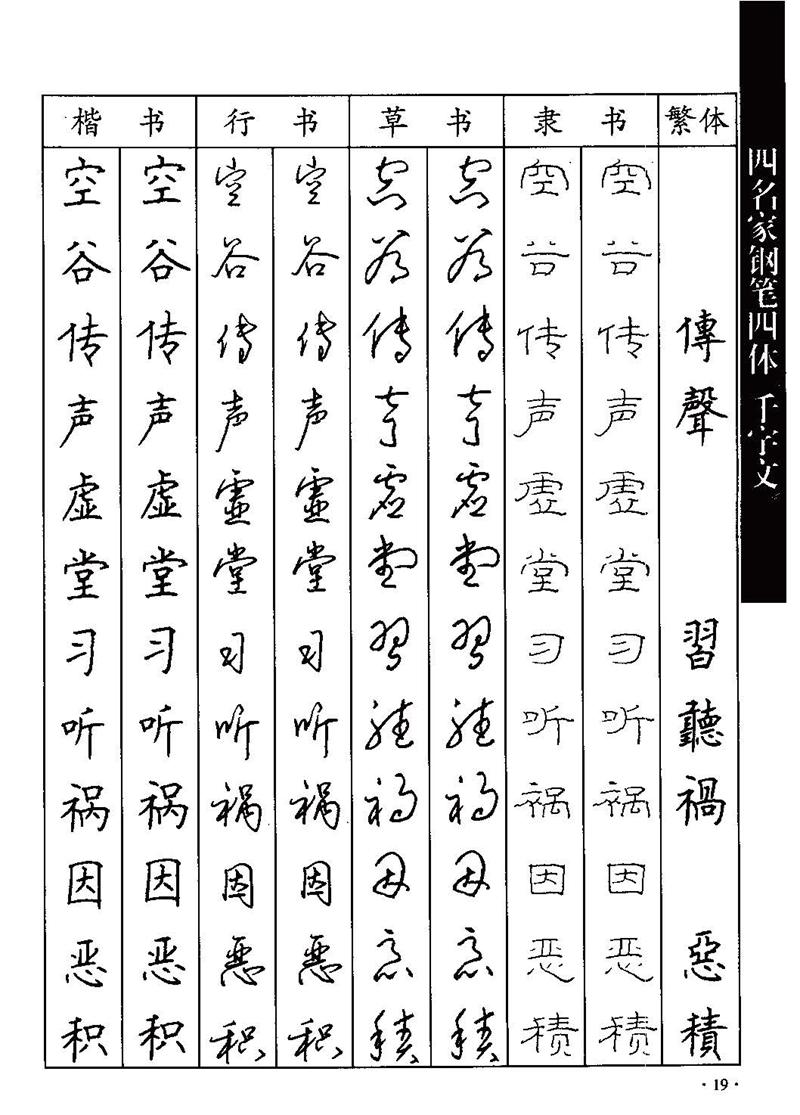 楷书 行书 草书 隶书 繁体
空 空 空 空 空 空 空 空
谷 谷 谷 谷 谷 谷 谷 谷
传 传 传 传 传 传 传 传 傳
声 声 声 声 声 声 声 声 聲
虚 虚 虚 虚 虚 虚 虚 虚
堂 堂 堂 堂 堂 堂 堂 堂
习 习 习 习 习 习 习 习 習
听 听 听 听 听 听 听 听 聽
祸 祸 祸 祸 祸 祸 祸 祸 禍
因 因 因 因 因 因 因 因
恶 恶 恶 恶 恶 恶 恶 恶 惡
积 积 积 积 积 积 积 积 積
四名家钢笔四体 千字文
·19·